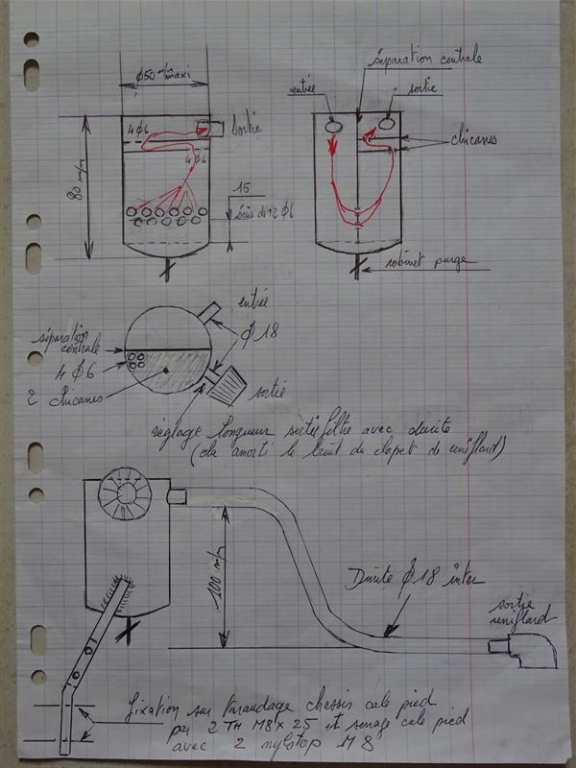 séparation centrale
Φ50 m/m maxi
entrée
sortie
4Φ6
Sortie
4 Φ6
chicanes
80 m/m
15
série de 12 Φ6
robinet purge
entrée
Φ18
séparation
centrale
4 Φ6
2 chicanes
sortie
réglage longueur sortie filtre avec durite
(ola amorti le bruit du clapet de reniflard)
100 m/m
Durite Φ18 inter
sortie
reniflard
fixation sur taraudage chassis cale pied
par 2 TH M8 x 25 et serrage cale pied
avec 2 nylstop M8